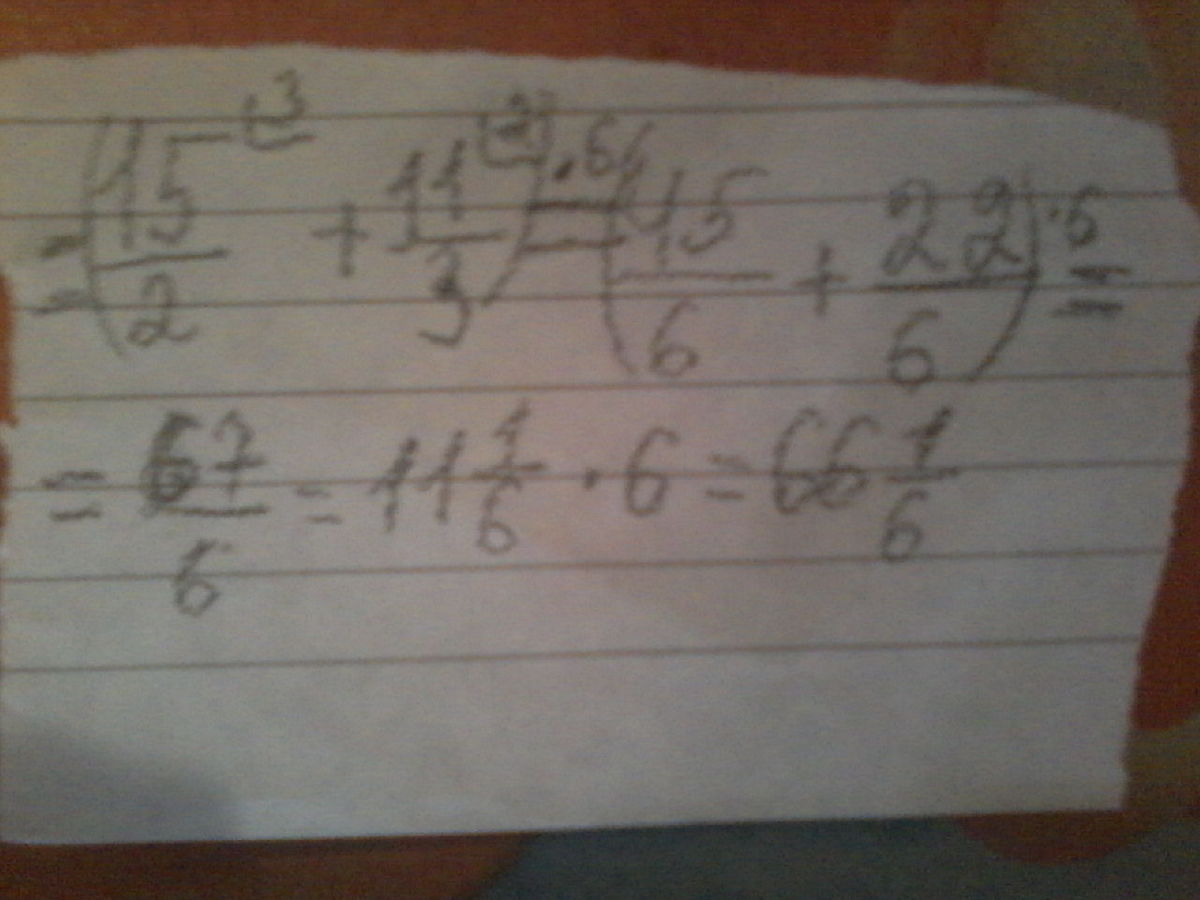 =(15/2 ⁽³ + 11/3 ⁽²⁾)·6=(45/6 + 22/6)·6=
= 67/6 = 11 1/6 · 6 = 66 1/6